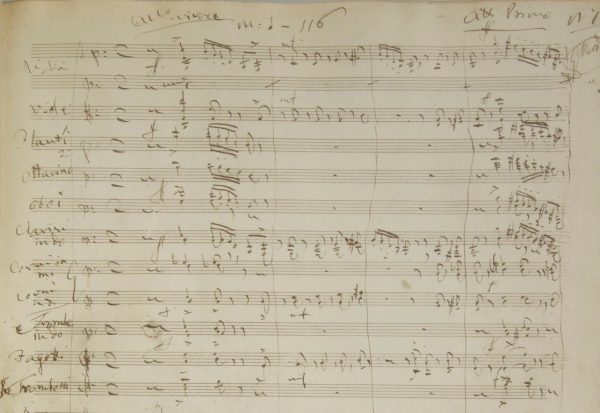 All.o vivace m: ♩ - 116 Atto Primo
Violini
Viole
Flauti
Ottavino
Oboi
Clarini
in do
Corni in
mi
Corni
Trombe
in do
Fagotti
Tre Tromboni